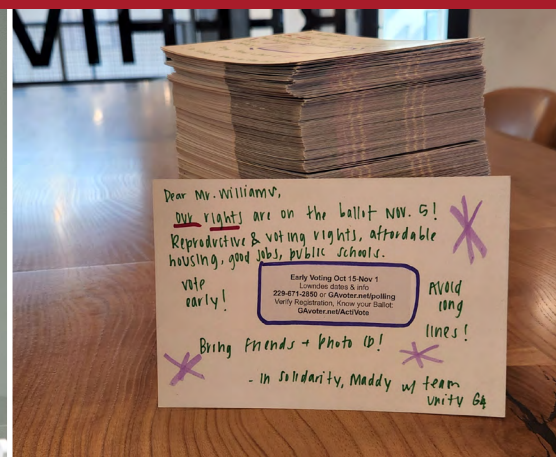 Dear Mr. Williams,
our rights are on the ballot NOV. 5!
Reproductive & voting rights, affordable
housing, good jobs, public schools.
vote
early!
Early Voting Oct 15-Nov 1
Lowndes dates & info
229-671-2850 or GAvoter.net/polling
Verify Registration, Know your Ballot:
GAvoter.net/ActiVote
Avoid
long
lines!
Bring Friends + Photo ID!
- In solidarity, Maddy w/ team
Unity GA